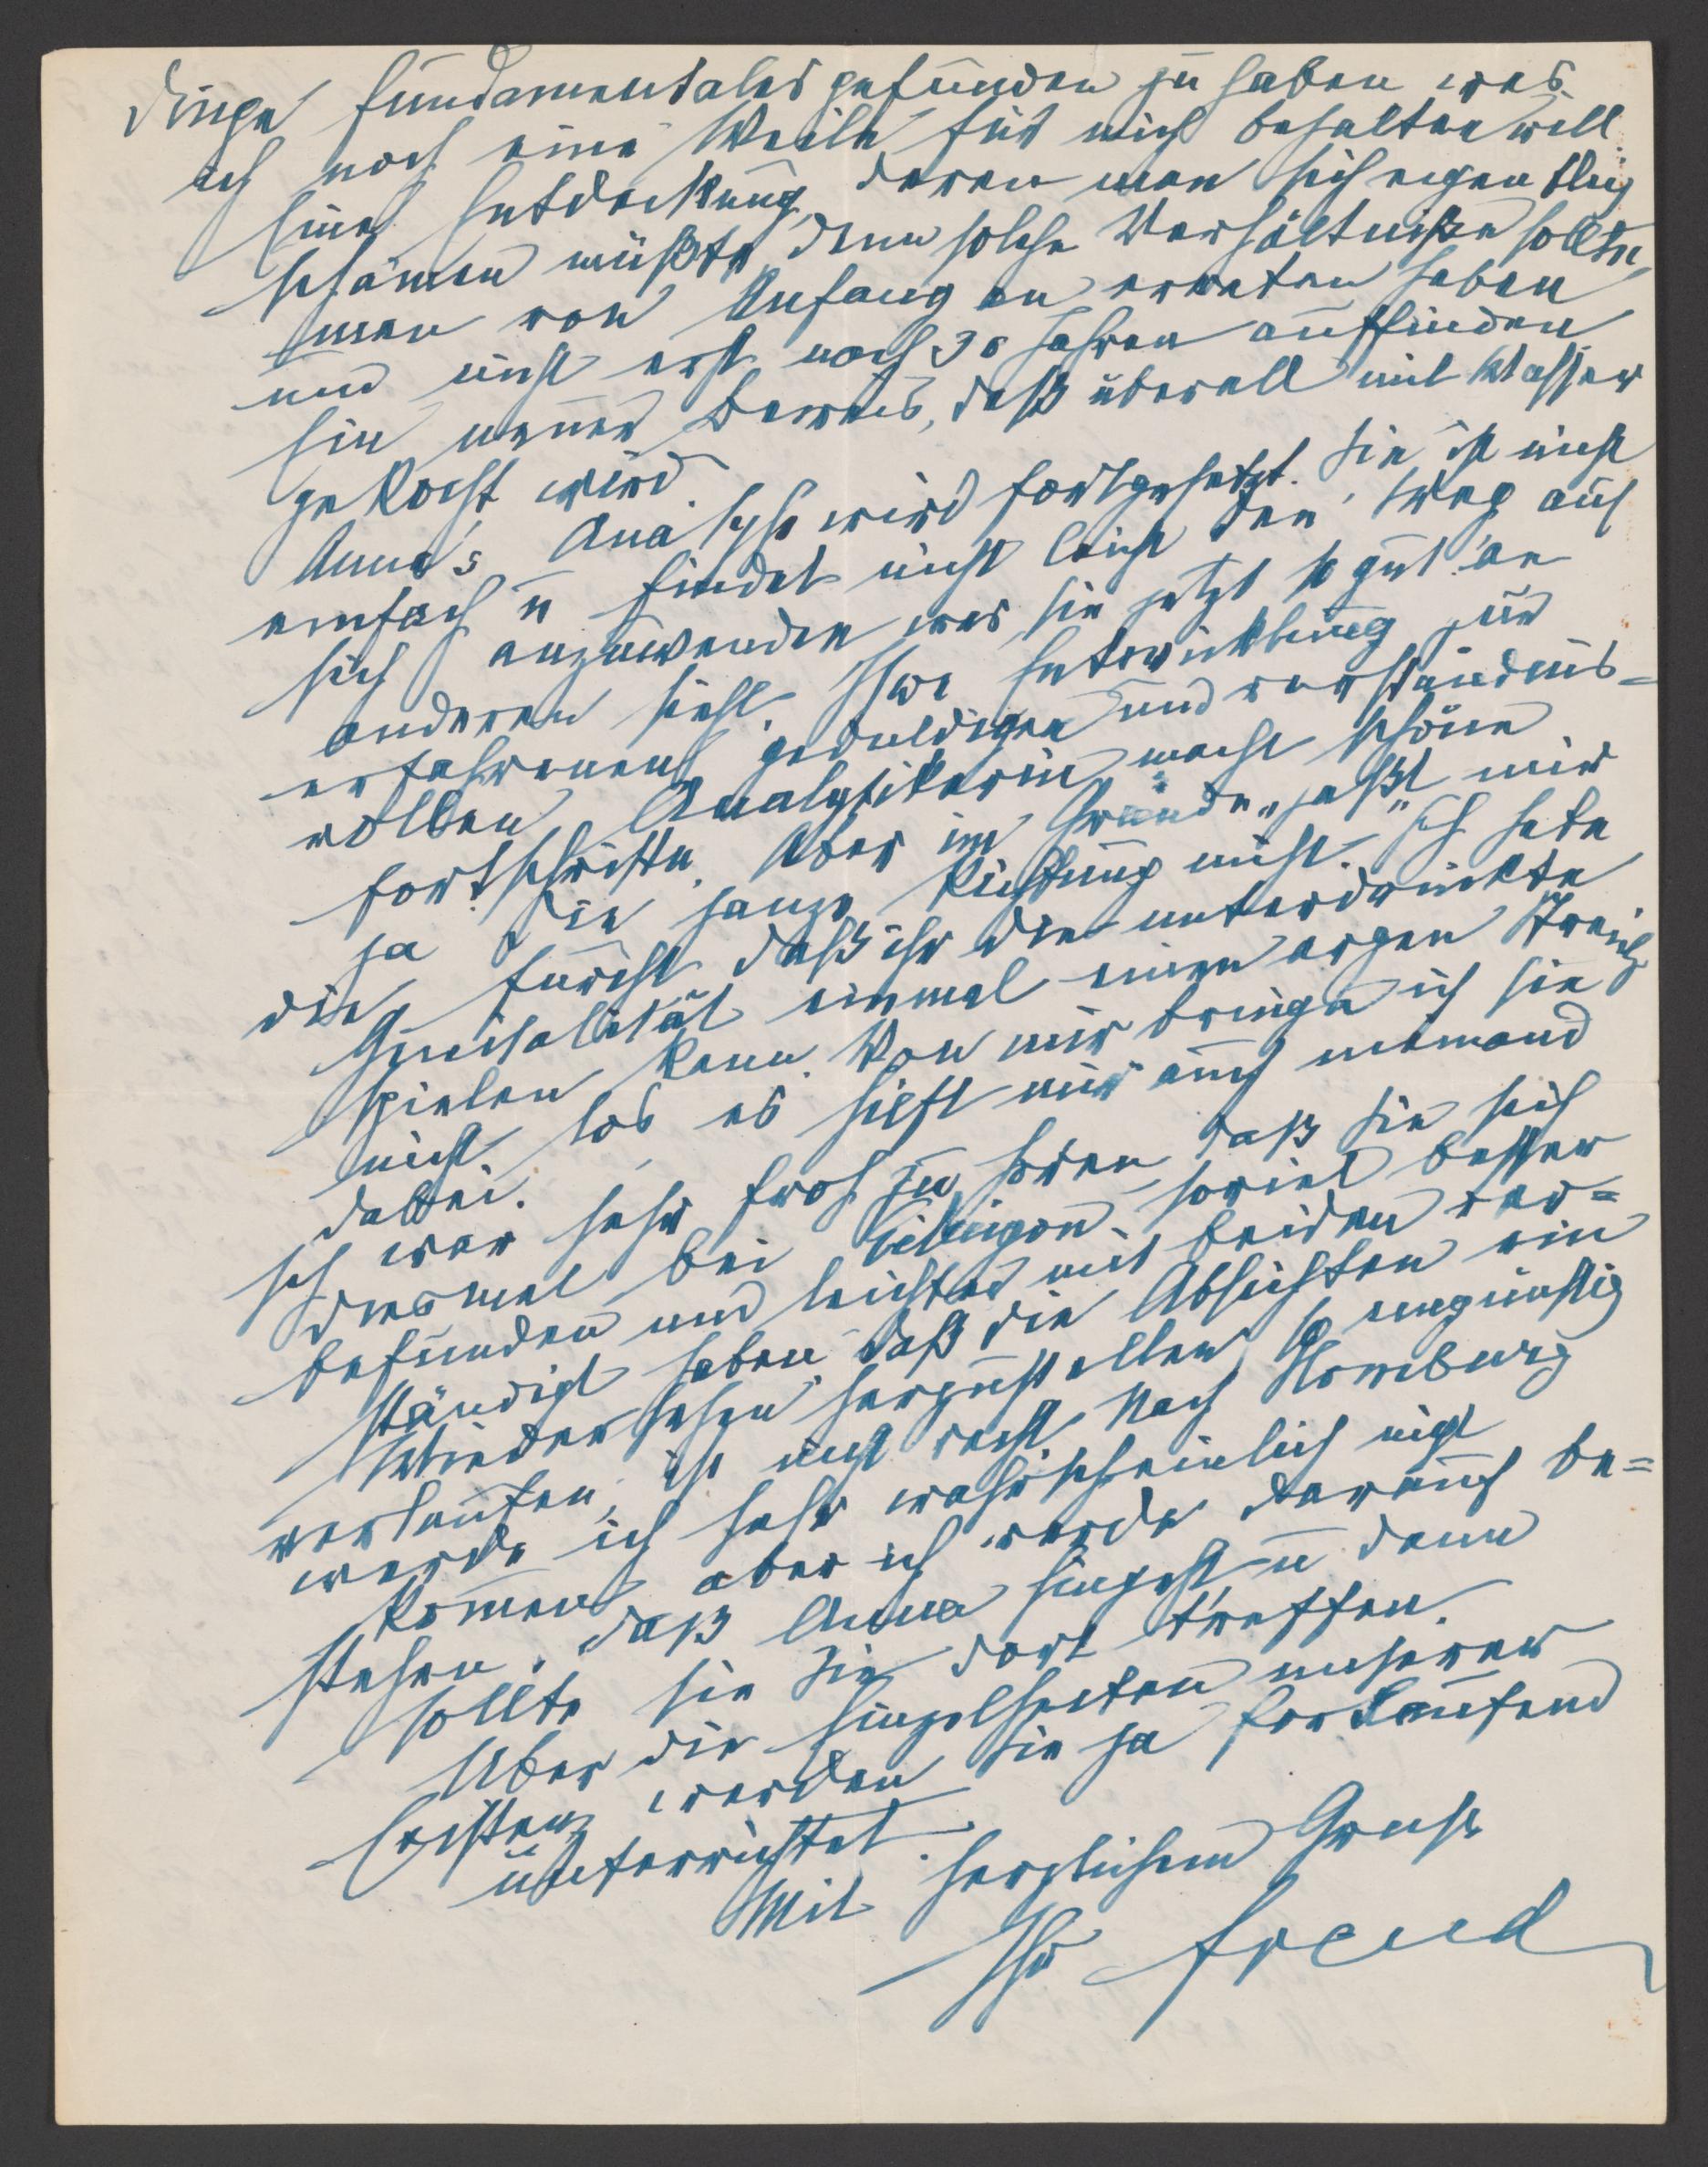 Dinge fundamentales gefunden zu haben was
ich noch eine Weile für mich behalten will
Eine Entdeckung, deren man sich eigentlich
schämen müßte, denn solche Verhältniße sollte
man von Anfang an erraten haben
und nicht erst nach 30 Jahren auffinden
Ein neuer Beweis, daß überall mit Wasser
gekocht wird.
Anna's Analyse wird fortgesetzt. Sie ist nicht
einfach u findet nicht leicht den Weg auf
sich anzuwenden was sie jetzt so gut an
anderen sieht. Ihre Entwicklung zur
erfahrenen geduldigen und verständnis-
vollen Analytikerin macht schöne
Fortschritte. Aber im Grunde „paßt mir
ja die ganze Richtung nicht." Ich habe
die Furcht daß ihr die unterdrückte
Genitalität einmal einen argen Streich
spielen kann. Von mir bringe ich sie
nicht los es hilft mir auch niemand
dabei.
Ich war sehr froh zu hören daß Sie sich
diesmal bei soviel besser
befunden und leichter mit beiden ver=
ständigt haben, daß die Absichten ein
Wiedersehen herzustellen so ungünstig
verlaufen, ist nicht recht. Nach Homburg
werde ich sehr wahrscheinlich nicht
komen aber ich werde darauf be=
stehen, daß Anna hingeht u dann
sollte sie Sie dort treffen.
Über die Einzelheiten unserer
Existenz werden Sie ja fortlaufend
unterrichtet.
Mit herzlichem Gruß
Ihr Freud